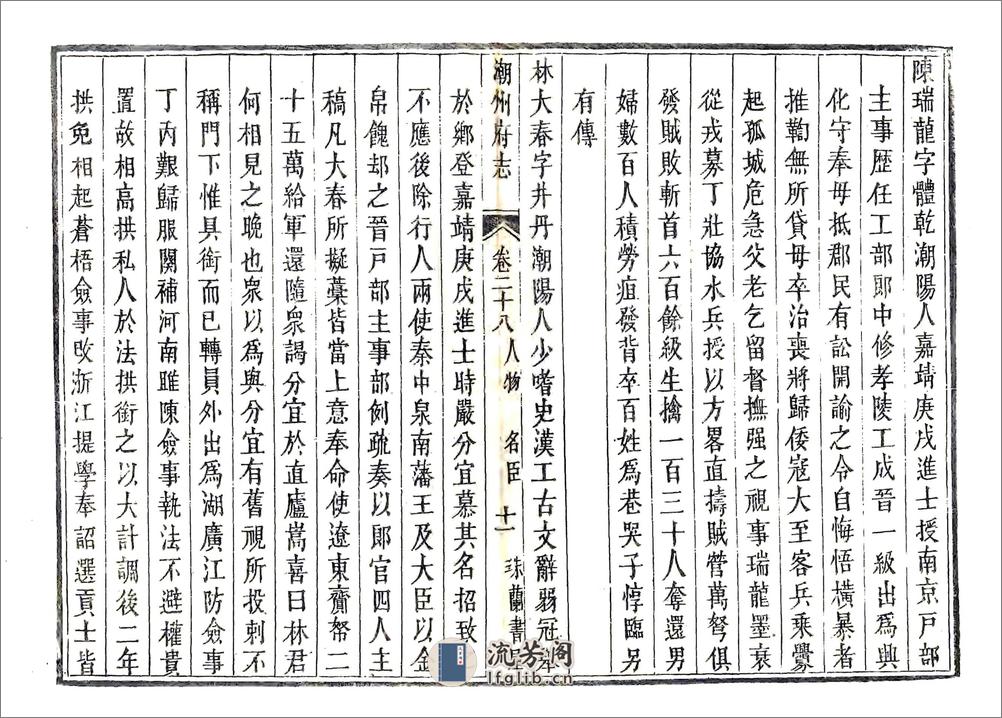 陳瑞龍字體乾潮陽人嘉靖庚戌進士授南京戸部
主事歴任工部郎中修孝陵工成晉一級出爲興
化守奉母抵郡民有訟開諭之令自悔悟橫暴者
推鞫無所貸母卒治喪將歸倭寇大至客兵乘釁
起孤城危急父老乞留督撫强之視事瑞龍墨衰
從戎募丁壯協水兵授以方畧直擣賊營萬弩俱
發賊敗斬首六百餘級生擒一百三十人奪還男
婦數百人積勞疽發背卒百姓爲巷哭子惇臨另
有傳
林大春字井丹潮陽人少嗜史漢工古文辭弱冠
潮州府志
卷二十八人物
名臣
十一
珠蘭書屋
於鄉登嘉靖庚戌進士時嚴分宜慕其名招致
不應後除行人兩使秦中泉南藩王及大臣以金
帛餽却之晉戸部主事部例疏奏以郎官四人主
稿凡大春所擬藁皆當上意奉命使遼東齎帑二
十五萬給軍還隨衆謁分宜於直廬嵩喜曰林君
何相見之晚也衆以爲與分宜有舊視所投刺不
稱門下惟具銜而已轉員外出爲湖廣江防僉事
丁內艱歸服闋補河南睢陳僉事執法不避權貴
置故相高拱私人於法拱銜之以大計調後二年
拱免相起蒼梧僉事改浙江提學奉詔選貢士皆
流芳阁
lfglib.cn